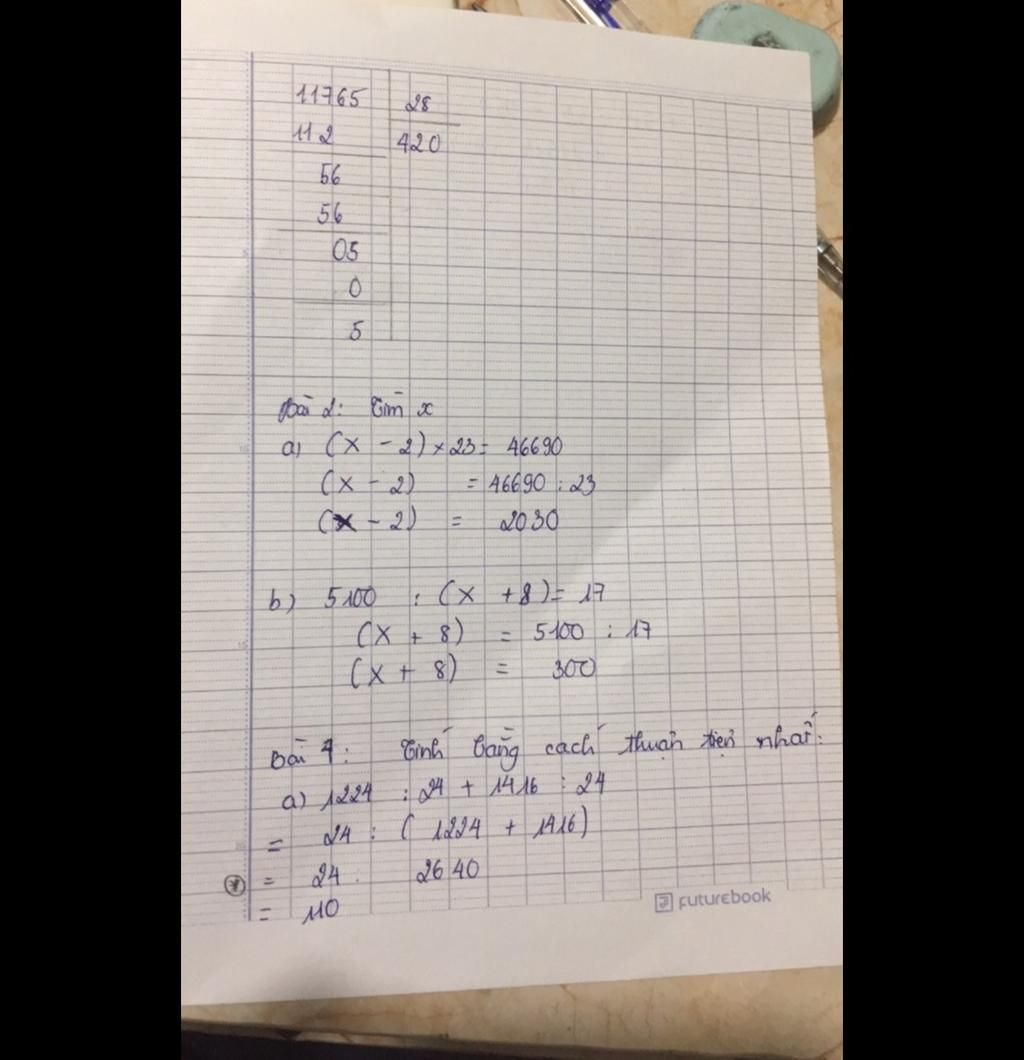 11765 28
112 420
56
56
05
0
5
Bài 2: Tìm x
a) (x - 2) × 23 = 46690
(x - 2) = 46690 : 23
(x - 2) = 2030
b) 5100 : (x + 8) = 17
(x + 8) = 5100 : 17
(x + 8) = 300
Bài 4: Tính bằng cách thuận tiện nhất:
a) 1224 : 24 + 1416 : 24
= 24 : ( 1224 + 1416)
= 24 : 2640
= 110
FUTUREBOOK